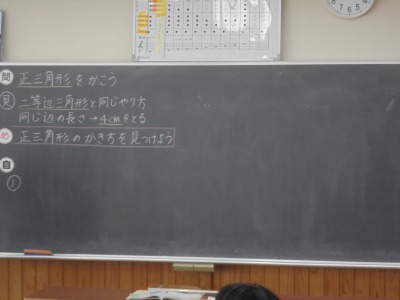 問 正三角形をかこう
見 二等辺三角形と同じやり方
同じ辺の長さ→4cmをとる
め 正三角形のかき方を見つけよう
自
①